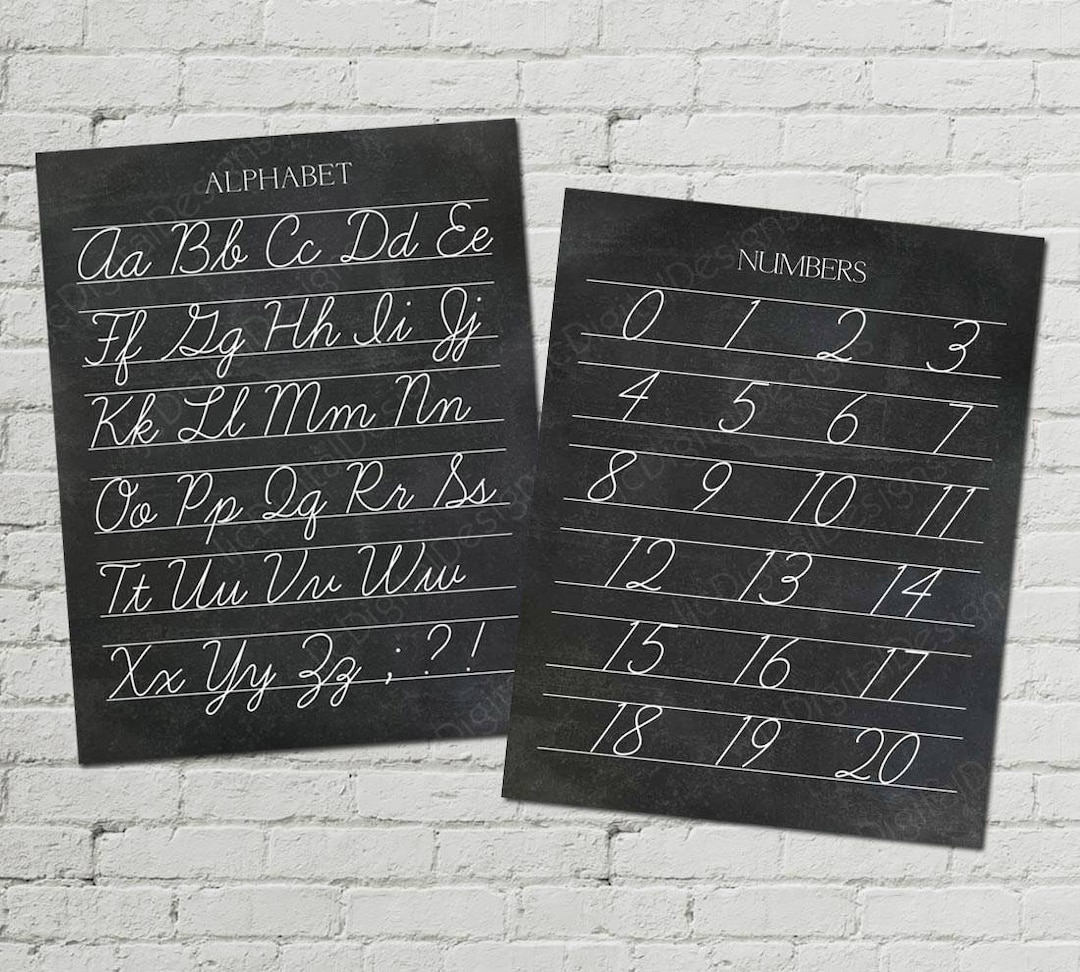 ALPHABET
Aa Bb Cc Dd Ee
Ff Gg Hh Ii Jj
Kk Ll Mm Nn
Oo Pp Qq Rr Ss
Tt Uu Vv Ww
Xx Yy Zz ; ? !
NUMBERS
0 1 2 3
4 5 6 7
8 9 10 11
12 13 14
15 16 17
18 19 20